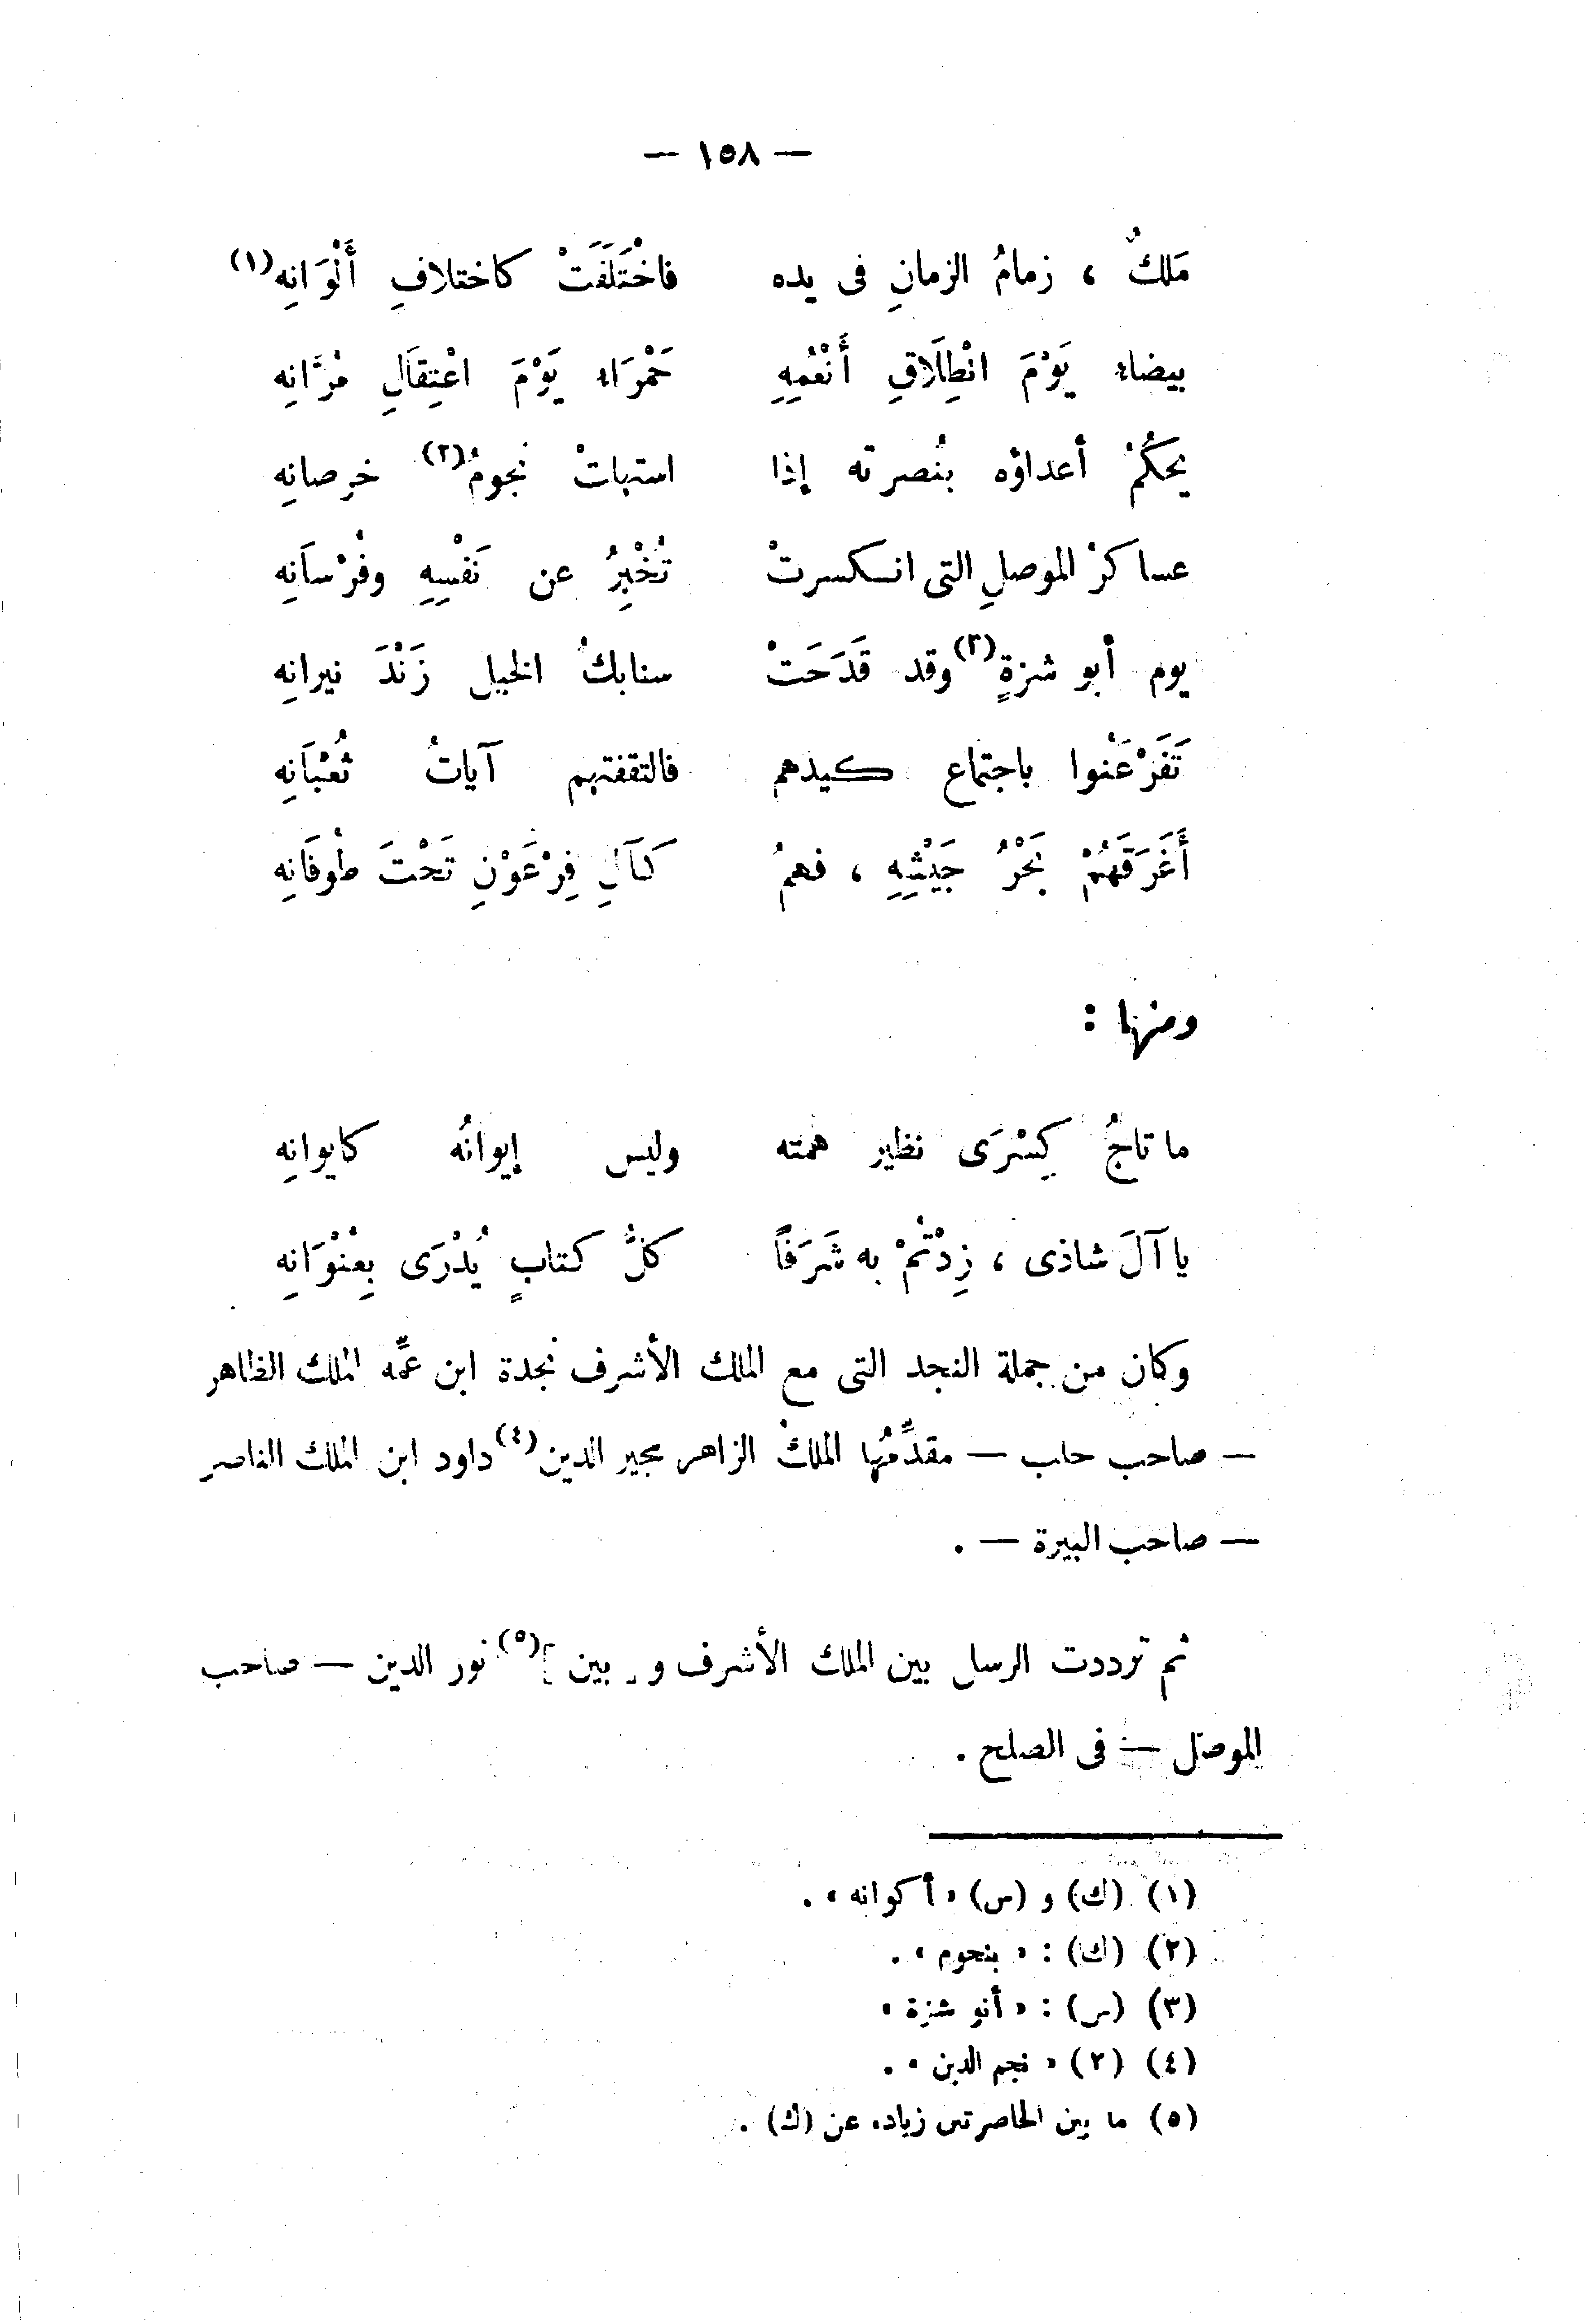 — ١٥٨ —
مَلكٌ ، زمامُ الزمانِ فى يده فاخْتَلَفَتْ كاختلافِ أَلْوَانِه(١)
بيضاء يَوْمَ انْطِلَاقِ أَنْعُمِهِ حَمْرَاء يَوْمَ اعْتِقَالِ مُرَّانِه
يحكُمْ أعداؤه بنُصرته إذا استبانتْ نجومُ(٢) خرصانِه
عساكرْ الموصلِ التى انكسرتْ تُخْبِرُ عن نَفْسِهِ وفُرْسَانِه
يوم أبو شزةٍ(٣) وقد قَدَحَتْ سنابكُ الخيل زَنْدَ نيرانِه
تَفَرْعَنوا باجتماع كيدهم فالتقفتهم آياتُ ثُعْبَانِه
أَغَرَقَهُمْ بَحْرُ جَيْشِهِ ، فهمُ كَآلِ فِرْعَوْنِ تَحْتَ طُوفَانِه
ومنها :
ما تاجُ كِسْرَى نظير همته وليس إيوانُه كايوانِه
يا آلَ شاذى ، زِدْتُمْ به شَرَفًا كلُّ كتابٍ يُدْرَى بِعُنْوَانِه
وكان من جملة النجد التى مع الملك الأشرف نجدة ابن عمِّه الملك الظاهر
— صاحب حلب — مقدِّمُها الملكُ الزاهر مجير الدين(٤) داود ابن الملك الناصر
— صاحب البيرة — .
ثم ترددت الرسل بين الملك الأشرف و[ بين ](٥) نور الدين — صاحب
الموصل — فى الصلح .
(١) (ك) و (س) « أكوانه » .
(٢) (ك) : « بنحوم » .
(٣) (س) : « أنو شزة »
(٤) (٢) « نجم الدين » .
(٥) ما بين الحاصرتين زيادة عن (ك) .